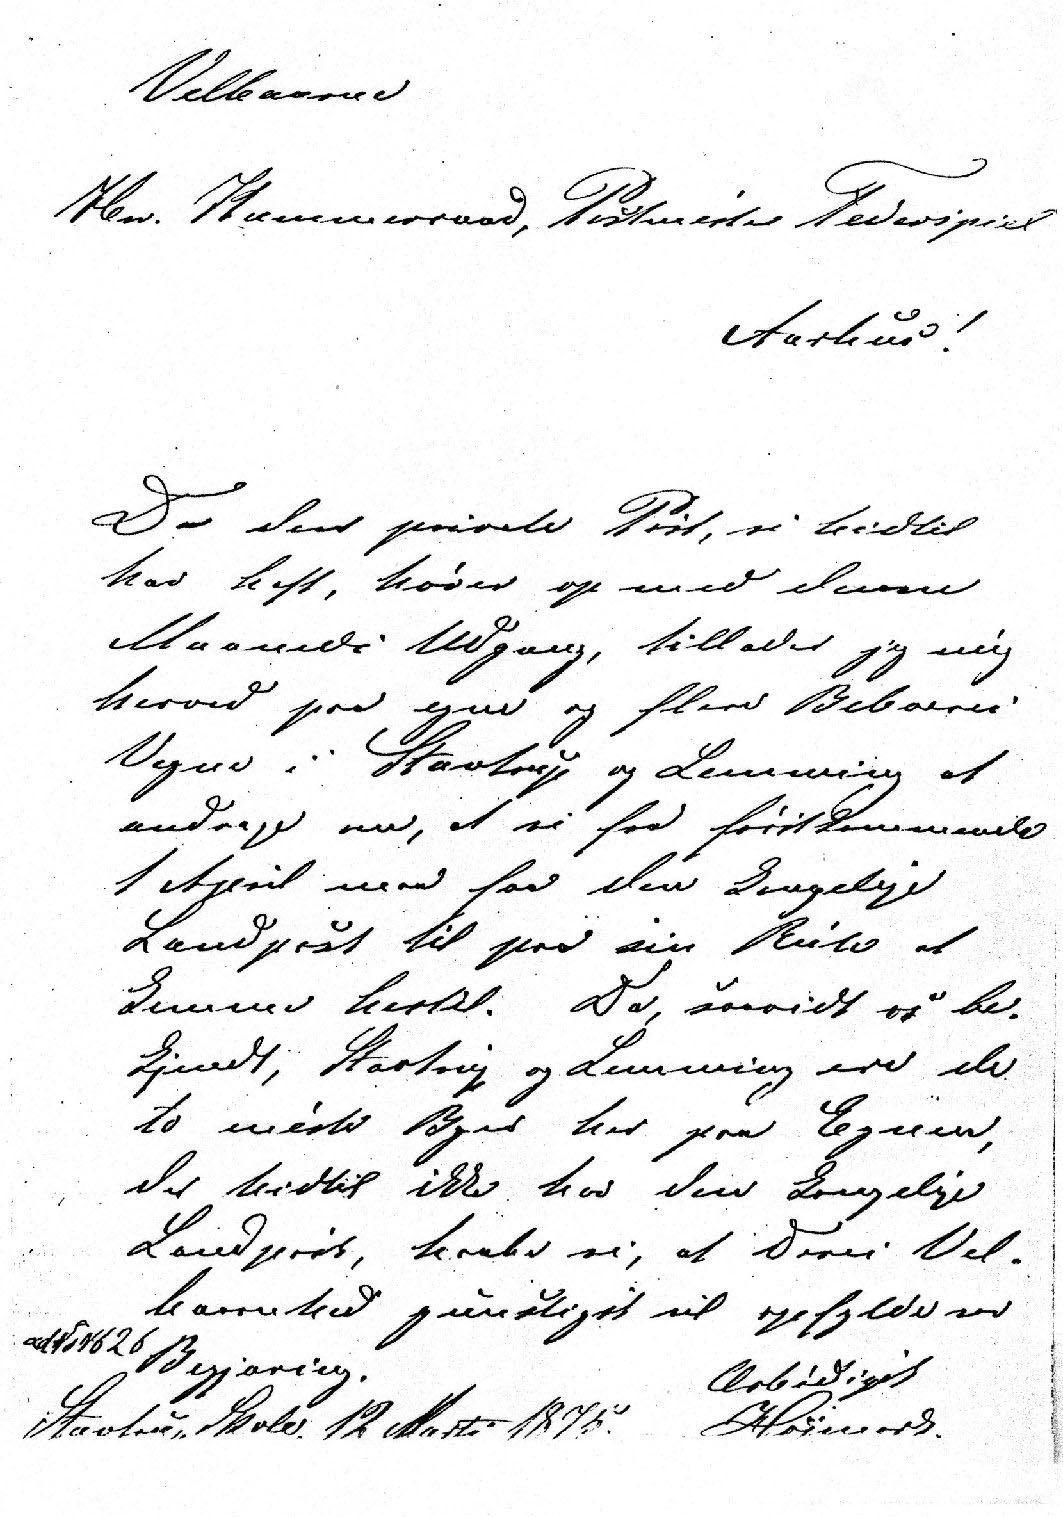 Velbaarne
Hr. Kammerraad, Postmester Federspiel
Aarhus!
Da den private Post, vi hidtil
har haft, hører op med denne
Maaneds Udgang, tillader jeg mig
herved paa egne og flere Beboeres
Vegne i Stavtrup og Lemming at
andrage om, at vi fra førstkommende
1 April maa faa den kongelige
Landpost til paa sin Rute at
komme hertil. Da, saavidt os be-
kjendt, Stavtrup og Lemming ere de
to eneste Byer her paa Egnen,
der hidtil ikke har den kongelige
Landpost, haabe vi, at Deres Vel-
baarenhed gunstigst vil opfylde vor
Begjæring.
ad No 1626
Ærbødigst
Stavtrup Skole. 12 Marts 1875.
Høimark.